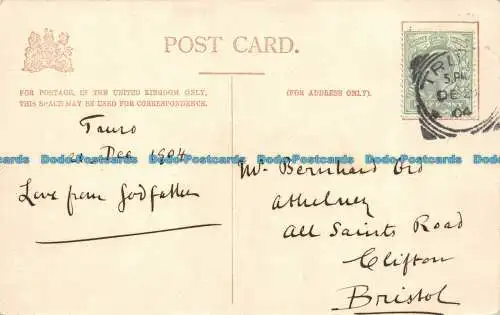 POST CARD.
FOR POSTAGE, IN THE UNITED KINGDOM ONLY,
THIS SPACE MAY BE USED FOR CORRESPONDENCE.
(FOR ADDRESS ONLY).
5.PM
DE 2
04
Dec 1904
Love from Godfather
Mr. Bernhard Ord
Athelney
All Saints Road
Clifton
Bristol
Dodo Postcards Dodo Postcards Dodo Postcards Dodo Postcards Dodo Postcards Dodo Postcards